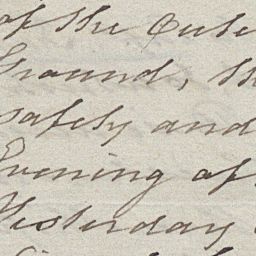 of the Oute
Ground, th
safely and
Evening af
Yesterday